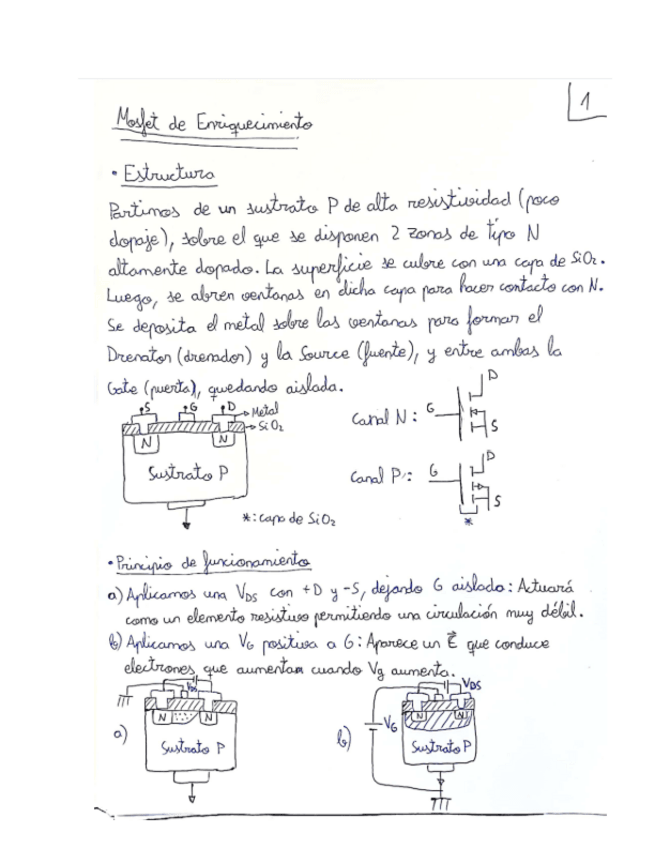 1
Mosfet de Enriquecimiento
• Estructura
Partimos de un sustrato P de alta resistividad (poco
dopaje), sobre el que se disponen 2 zonas de tipo N
altamente dopado. La superficie se cubre con una capa de SiO₂.
Luego, se abren ventanas en dicha capa para hacer contacto con N.
Se deposita el metal sobre las ventanas para formar el
Drenator (drenador) y la Source (fuente), y entre ambas la
Gate (puerta), quedando aislada.
S G D Metal
SiO₂
N N
Sustrato P
Canal N: G D S
Canal P: G D S
*
*: capa de SiO₂
• Principio de funcionamiento
a) Aplicamos una VDS con +D y -S, dejando G aislado: Actuará
como un elemento resistivo permitiendo una circulación muy débil.
b) Aplicamos una VG positiva a G: Aparece un E⃗ que conduce
electrones que aumentan cuando Vg aumenta.
a) VDS
N N
Sustrato P
b) VG VDS
N N
Sustrato P